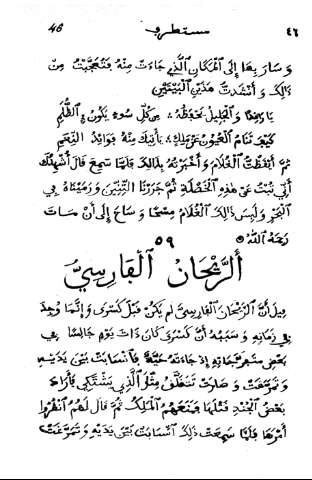 ٤٦ مستطرف 46
وَسَارَ بِهَا إِلَى ٱلْمَكَانِ ٱلَّذِي جَاءَتْ مِنْهُ فَتَعَجَّبْتُ مِنْ
ذَالِكَ وَأَنْشَدتُّ هَذَيْنِ ٱلْبَيْتَيْنِ
يَا رَاقِدًا وَٱلْجَلِيلُ يَحْفَظُهُ ؞ مِنْ كُلِّ سُوءٍ يَكُونُ فِي ٱلظُّلَمِ
كَيْفَ تَنَامُ ٱلْعُيُونُ عَنْ مَلِكٍ ؞ يَأْتِيكَ مِنْهُ فَوَائِدُ ٱلنِّعَمِ
ثُمَّ أَيْقَظْتُ ٱلْغُلَامَ وَأَخْبَرْتُهُ بِذَالِكَ فَلَمَّا سَمِعَ قَالَ أُشْهِدُكَ
أَنِّي تُبْتُ عَنْ هٰذِهِ ٱلْخَصْلَةِ ثُمَّ جَرَرْنَا ٱلتِّنِّينَ وَرَمَيْنَاهُ فِي
ٱلْبَحْرِ وَلَبِسَ ذَالِكَ ٱلْغُلَامُ مِسْحًا وَسَاحَ إِلَى أَنْ مَاتَ
رَحِمَهُ ٱللّٰهُ
٥٩
أَلرَّيْحَانُ ٱلْفَارِسِيُّ
قِيلَ أَنَّ ٱلرَّيْحَانَ ٱلْفَارِسِيَّ لَمْ يَكُنْ قَبْلَ كَسْرَى وَإِنَّمَا وُجِدَ
فِي زَمَانِهِ وَسَبَبُهُ أَنَّ كَسْرَى كَانَ ذَاتَ يَوْمٍ جَالِسًا فِي
بَعْضِ مُتَفَرَّجَاتِهِ إِذْ جَاءَتْهُ حَيَّةٌ فَٱنْسَابَتْ بَيْنَ يَدَيْهِ
وَتَمَرَّغَتْ وَصَارَتْ تَتَعَلَّقُ مِثْلَ ٱلَّذِي يَشْتَكِي فَأَرَادَ
بَعْضُ ٱلْجُنْدِ قَتْلَهَا فَمَنَعَهُمُ ٱلْمَلِكُ ثُمَّ قَالَ لَهُمُ ٱنْظُرُوا
أَمْرَهَا فَلَمَّا سَمِعَتْ ذَلِكَ ٱنْسَابَتْ بَيْنَ يَدَيْهِ وَتَمَرَّغَتْ